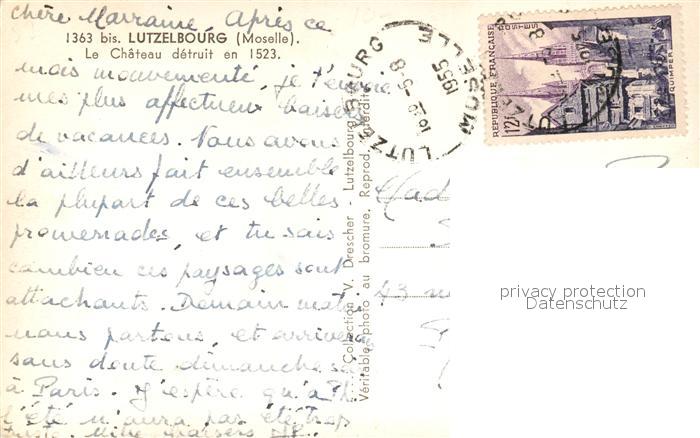 chère Marraine. Après ce
1363 bis. LUTZELBOURG (Moselle).
Le Château détruit en 1523.
mois mouvementé, je t'envoie
mes plus affectueux baisers
de vacances. Nous avons
d'ailleurs fait ensemble
la plupart de ces belles
promenades, et tu sais
combien ces paysages sont
attachants. Demain matin
nous partons, et arriverons
sans doute dimanche soir
à Paris. J'espère qu'à
l'été n'aura pas été trop
triste. Mille baisers
Collection V. Drescher - Lutzelbourg
Véritable photo au bromure. Reprod. interdite
LUTZELBOURG
MOSELLE
5-8
1955
REPUBLIQUE FRANÇAISE
POSTES
12F
QUIMPER
43
privacy protection
Datenschutz